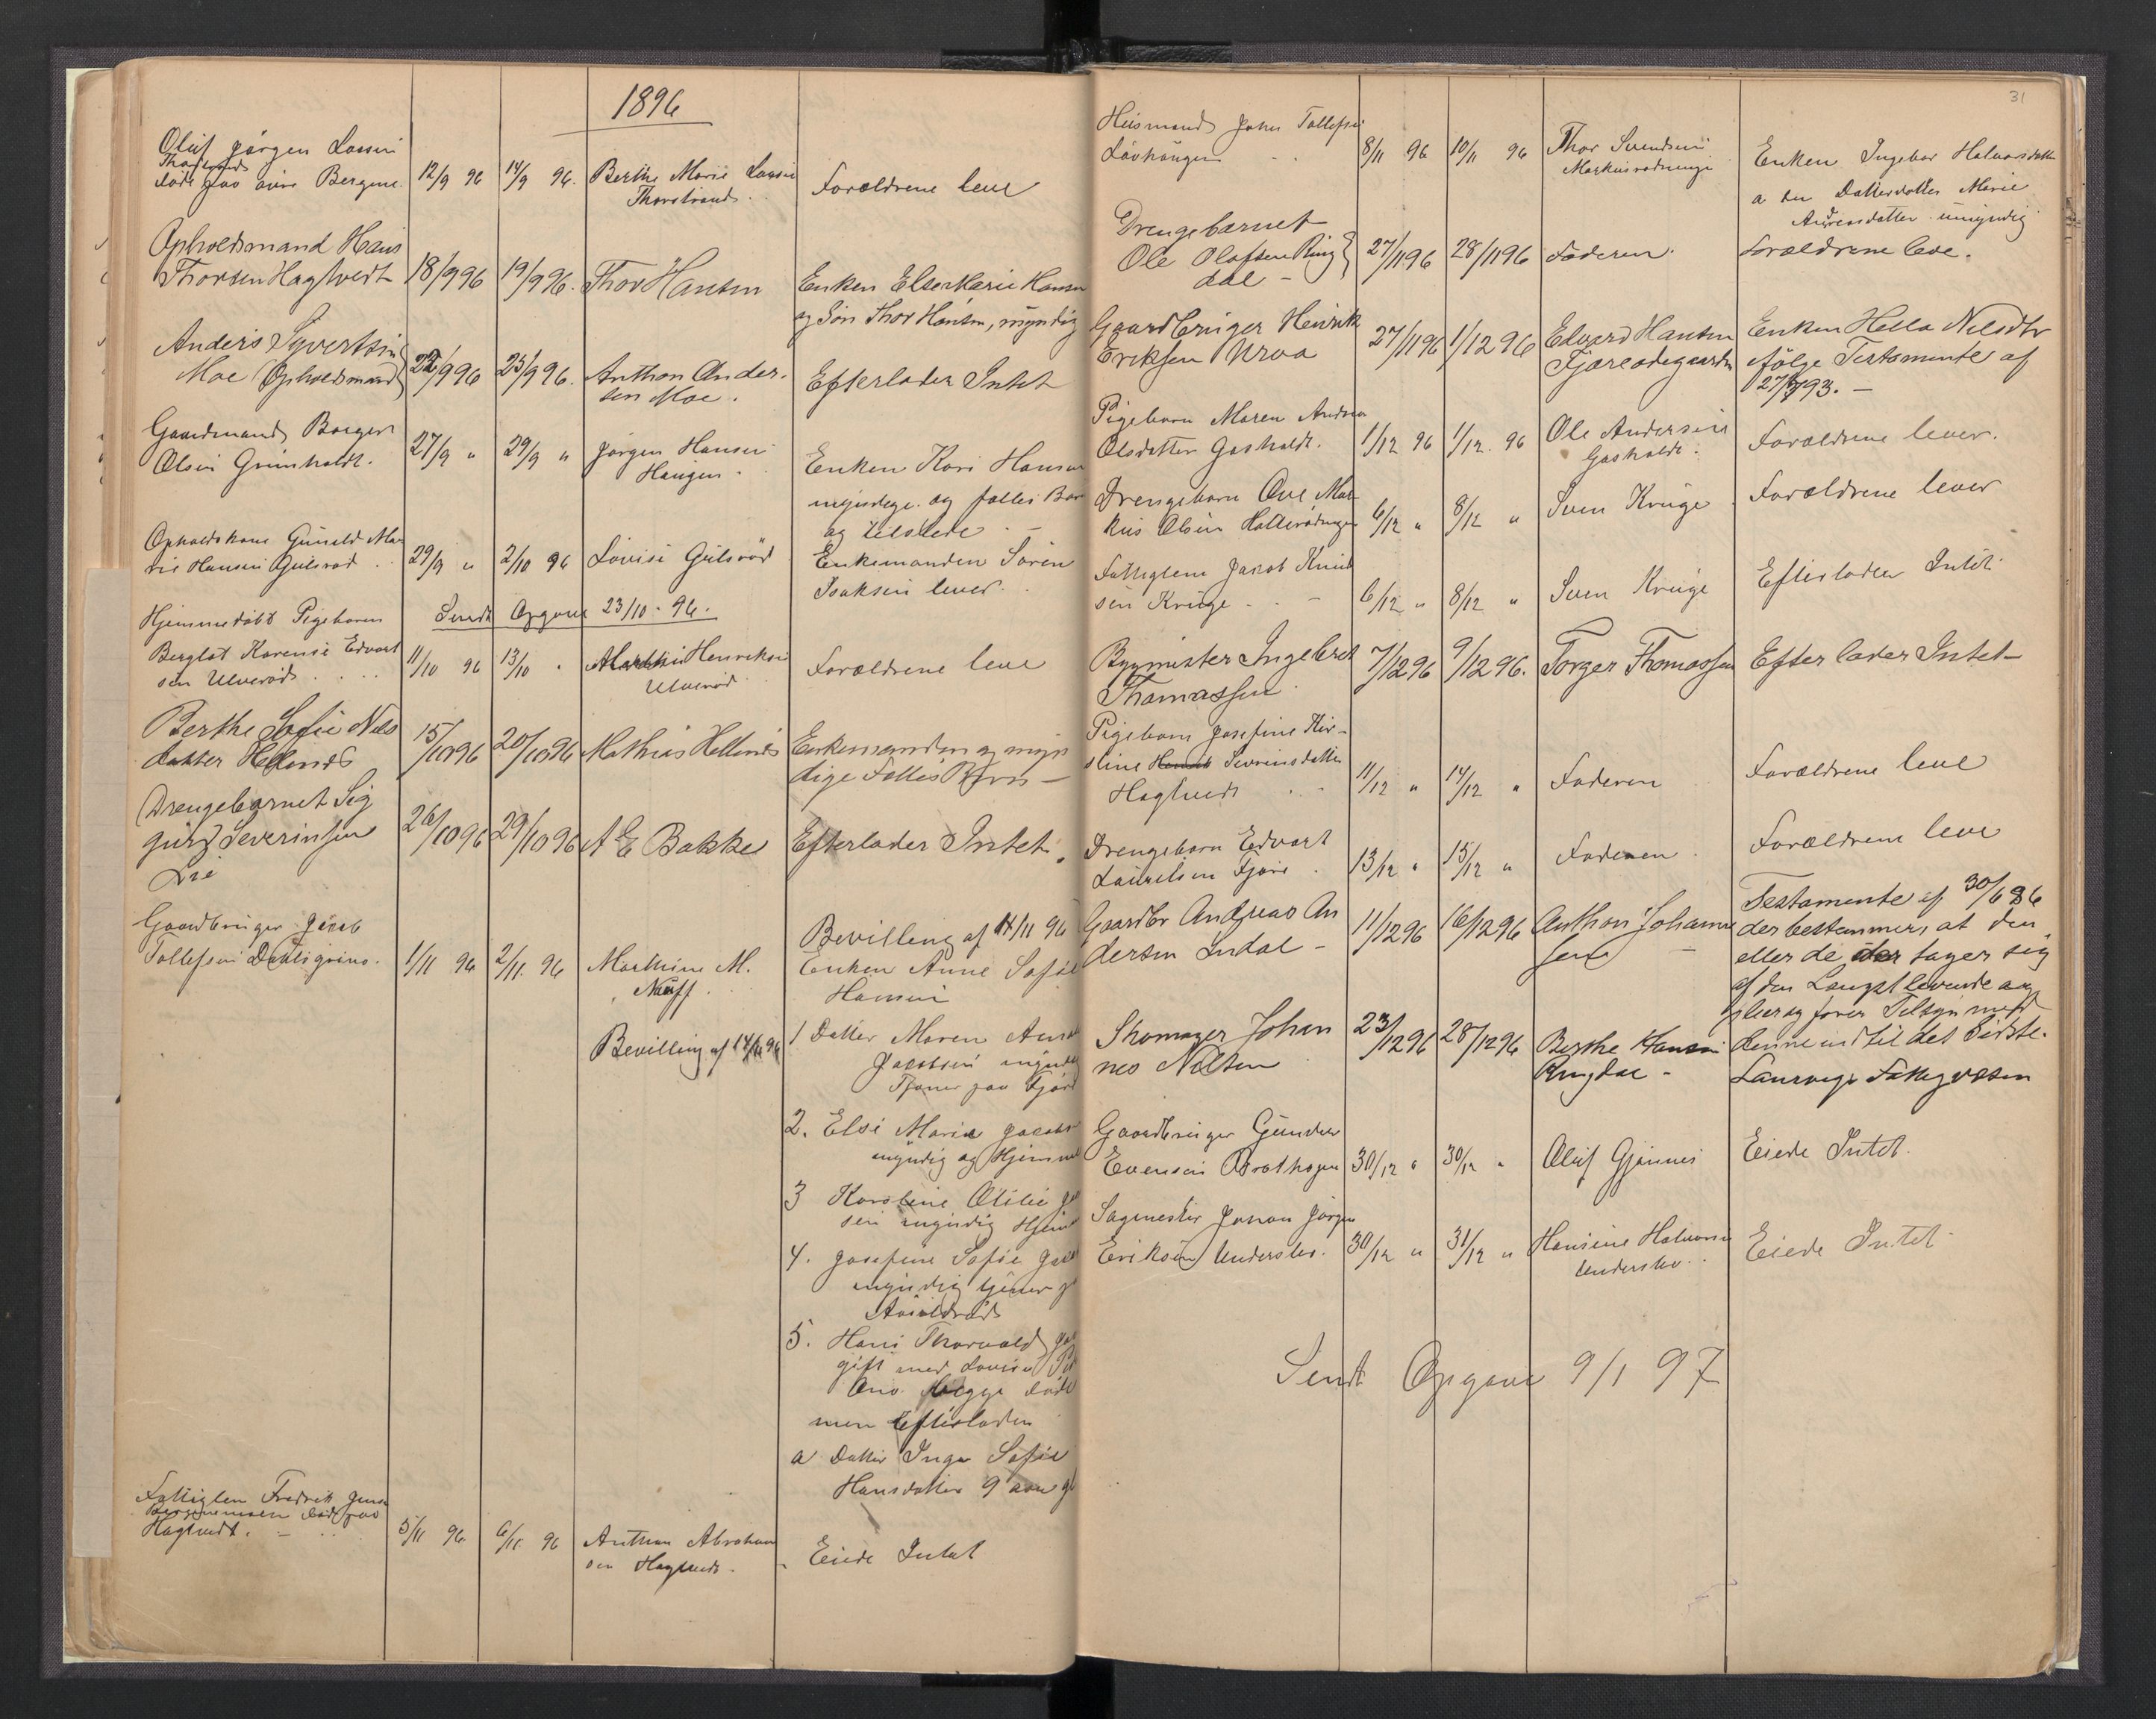 1896
Oluf Jørgen Larsen
Thorstrand
døde paa øvre Bergene. 12/9 96 14/9 96. Berthe Marie Larsen
Thorstrand. Forældrene leve
Opholdsmand Hans
Thorsen Hagtvedt 18/9 96 19/9 96. Thor Hansen Enken Else Marie Hansen
og Søn Thor Hansen, myndig
Anders Syvertsen
Moe Opholdsmand 22/9 96 25/9 96. Anthon Ander-
sen Moe. Efterlader Intet
Gaardmand Borger
Olsen Grimholt. 27/9 " 29/9 " Jørgen Hansen
Haugen. Enken Kari Hansen
myndige og fælles Børn
og tilstede
Opholdskone Gunild Ma-
rie Hansen Gulsrød 29/9 " 2/10 96 Lovise Gulsrød Enkemanden Søren
Isaksen lever.
Sendt Opgave 23/10 - 96.
Hjemmedøbt Pigebarn
Berglot Karense Edvart
sen Ulverød 11/10 96 13/10 " Henriksen
Ulverød Forældrene leve
Berthe Sofie Nils
datter Hellenes 15/10 96 20/10 96 Mathias Hellenes Enkemanden og myn
dige Fælles Børn —
Drengebarnet Sig
gurd Severinsen
Lie 26/10 96 29/10 96 A E Bakke Efterlader Intet.
Gaardbruger Jacob
Tollefsen 1/11 96 2/11 96 Marthine M.
Næss
Bevilling af 14/11 96
Bevilling af 14/11 96
Enken Anne Sofie
Hansen
1 Datter Maren Anna
Jacobsen myndig
Tjener paa Fjære
2. Else Marie Jacobs
myndig og Hjemme
3 Karoline Otilie Ja
sen myndig Hjem
4. Josefine Sofie Jaco
myndig tjener p
5. Hans Thorvald Ja
gift med Lovise
begge døde
men Efterlader
a Datter Inga Sofie
Hansdatter 9 aar gl
Fattiglem Fredrik Jens
død paa
Hagtvedt. 5/11 96 6/11 96 Anthon Abraham
sen Hagtvedt. Eiede Intet
31
Husmand Johan Tollefsen
Løvhaugen 8/11 96 10/11 96 Thor Svendsen
Markusrødningen Enken Ingebor Halvorsdatter
a en Datterdatter Marie
Andreasdatter umyndig
Drengebarnet
Ole Olafsen Ring
dal - 27/11 96 28/11 96 Faderen. Forældrene leve.
Gaardbruger Henrik
Eriksen Urva 27/11 96 1/12 96 Edvard Hansen
Fjæreødegaarden Enken Hella Nilsdtr
ifølge Testamente af
27/7 93. —
Pigebarn Maren Andrea
Olsdatter Gasholt. 1/12 96 1/12. 96 Ole Andersen
Gasholt. Forældrene lever.
Drengebarn Ove Mar-
kus Olsen Holterødningen 6/12 " 8/12 " Sven Krüge Forældrene lever
Fattiglem Jacob Knud
sen Krüge 6/12 " 8/12 " Sven Krüge Efterlader Intet
Bygmester Ingebret
Thomassen 7/12 96 9/12 96. Torger Thomassen Efterlader Intet
Pigebarn Josefine Kir-
stine Severinsdatter
Hagtvedt 11/12 " 14/12 " Faderen Forældrene leve
Drengebarn Edvart
Lauritsen Fjære 13/12 " 15/12 " Faderen Forældrene leve
Gaardbr Andreas An
dersen Indal - 11/12 96 16/12 96 Anthon Johanne
sen Testamente af 30/6 86
der bestemmer, at den
eller de der tager sig
af den Længstlevende og
pleier og fører Tilsyn med
denne indtil det Sidste.
Skomager Johan
nes Nilsen 23/12 96 28/12 96 Berthe Hansen
Ringdal - Laurvigs Fattigvæsen
Gaardbruger Gunder
Evensen Brathagen 30/12 " 30/12 " Oluf Gjønnes Eiede Intet.
Sagmester Johan Jørgen
Eriksen Undersbo. 30/12 " 31/12 " Hansine Halvorsen
Undersbo. Eiede Intet
Sendt Opgave 9/1 97